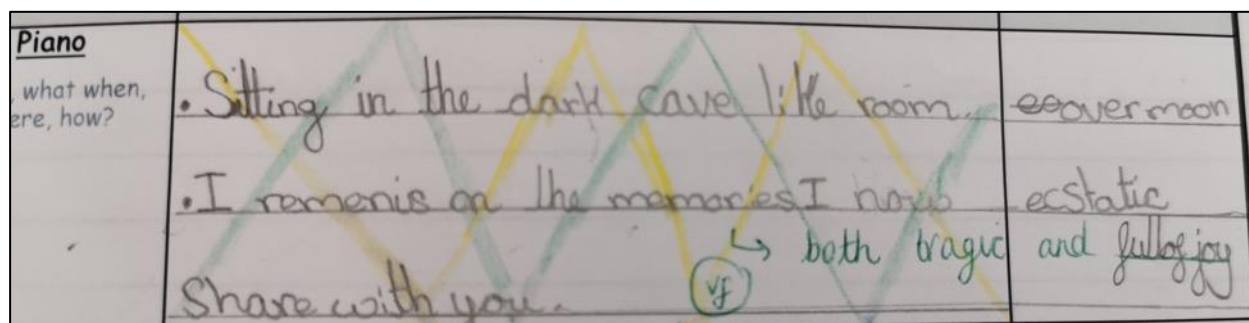 Piano
, what when,
ere, how?
• Sitting in the dark cave like room.
• I remenis on the memories I
↳ both tragic and full of joy
vf
Share with you.
overmoon
ecstatic